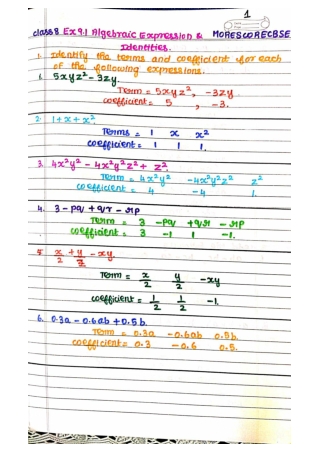 1
class 8 Ex 9.1 Algebraic Expression & MORESCORECBSE
Identities.
1. Identify the terms and coefficient for each
of the following expressions.
1. 5xyz² - 3zy.
Term = 5xyz², -3zy
coefficient = 5 , -3.
2. 1 + x + x²
Terms = 1 x x²
coefficient = 1 1 1.
3. 4x²y² - 4x²y²z² + z².
Term = 4x²y² -4x²y²z² z²
Coefficient = 4 -4 1.
4. 3 - pq + qr - rp
Term = 3 -pq +qr -rp
Coefficient = 3 -1 1 -1.
5. x/2 + y/2 - xy.
Term = x/2 y/2 -xy
coefficient = 1/2 1/2 -1.
6. 0.3a - 0.6ab + 0.5b.
Term = 0.3a -0.6ab 0.5b.
Coefficient = 0.3 -0.6 0.5.